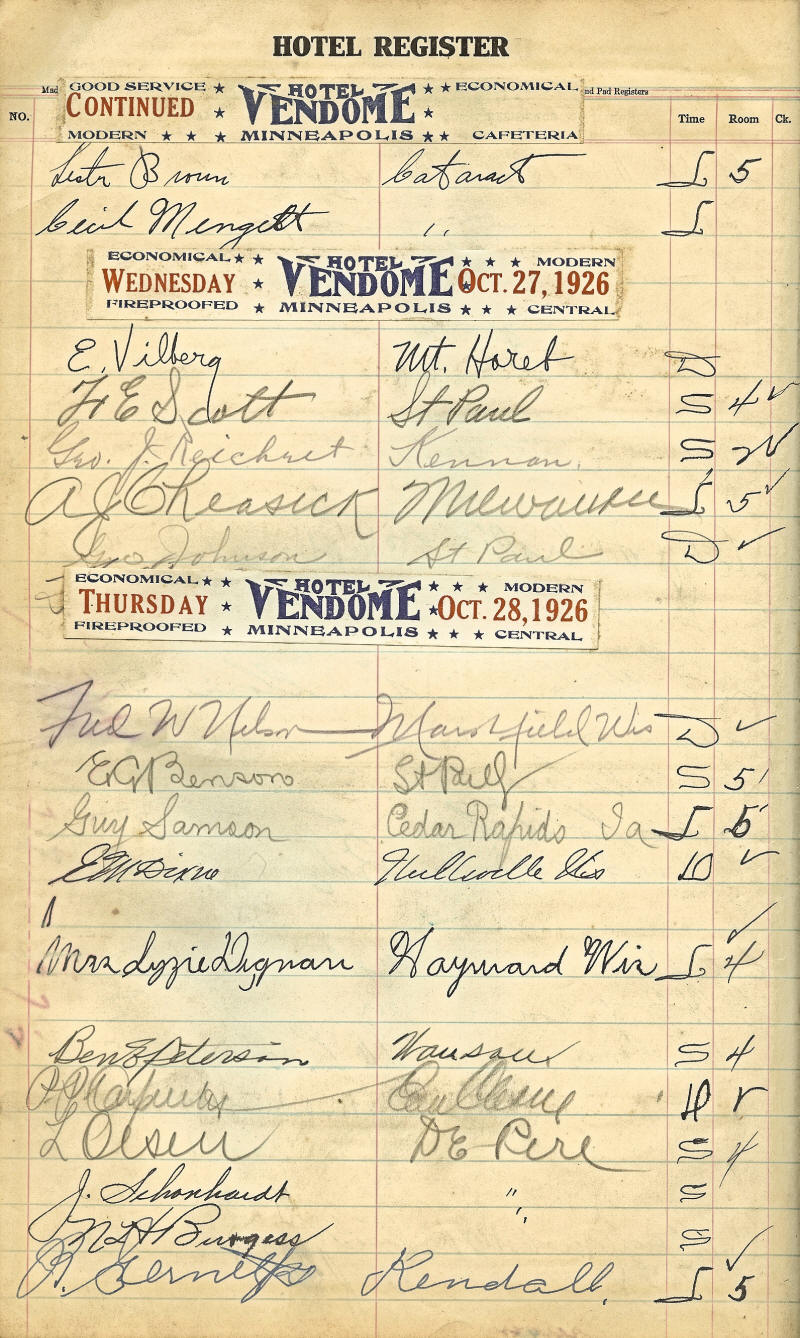 HOTEL REGISTER
Mad nd Pad Registers
NO. Time Room Ck.
GOOD SERVICE ★ HOTEL ★ ★ ECONOMICAL
CONTINUED ★ VENDOME ★
MODERN ★ ★ ★ MINNEAPOLIS ★ ★ CAFETERIA
Lestr Brown Cataract L 5
Cecil Mengelt " L
ECONOMICAL ★ ★ HOTEL ★ ★ ★ MODERN
WEDNESDAY ★ VENDOME ★ OCT. 27, 1926
FIREPROOFED ★ MINNEAPOLIS ★ ★ ★ CENTRAL
E. Vilberg Mt. Horeb D
F E Scott St Paul S 4 ✓
Geo. J. Reichret Kennan. S ✓
A J Cheasick Milwaukee L 5 ✓
Geo Johnson St Paul D ✓
ECONOMICAL ★ ★ HOTEL ★ ★ ★ MODERN
THURSDAY ★ VENDOME ★ OCT. 28, 1926
FIREPROOFED ★ MINNEAPOLIS ★ ★ ★ CENTRAL
Fred W Nelson Marshfield Wis D ✓
E G Benson St Paul S 5
Guy Samson Cedar Rapids Ia L 5
E M Dixne Wis D ✓
Mrs Lyzie Dignan Hayward Wis L 4 ✓
Ben E Peterson Wausau S 4
Eau Claire D ✓
L Olsen DE Pere S 4
J. Schonhardt " S
M L H Burgess " S
Kendall. L 5 ✓